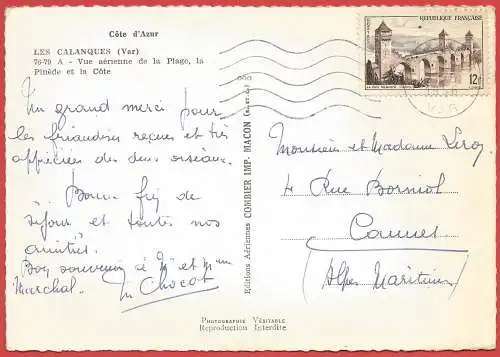 Côte d'Azur
LES CALANQUES (Var)
76-79 A - Vue aérienne de la Plage, la
Pinède et la Côte
Un grand merci pour
les friandises reçues et très
appréciées des deux oiseaux.
Bonne fin de
séjour et toutes nos
amitiés.
Bon souvenir à Mr et Mme
Marchal.
M Chocot
Editions Aériennes COMBIER IMP. MACON (S.-et-L.)
REPUBLIQUE FRANÇAISE
12f
VAR
Monsieur et Madame Leroy
4 Rue
Cannes
(Alpes Maritimes)
PHOTOGRAPHIE VÉRITABLE
Reproduction Interdite